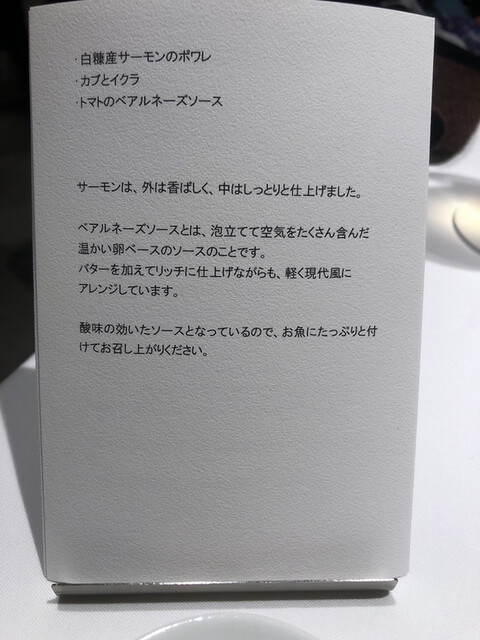 ・白糠産サーモンのポワレ
・カブとイクラ
・トマトのベアルネーズソース
サーモンは、外は香ばしく、中はしっとりと仕上げました。
ベアルネーズソースとは、泡立てて空気をたくさん含んだ
温かい卵ベースのソースのことです。
バターを加えてリッチに仕上げながらも、軽く現代風に
アレンジしています。
酸味の効いたソースとなっているので、お魚にたっぷりと付
けてお召し上がりください。